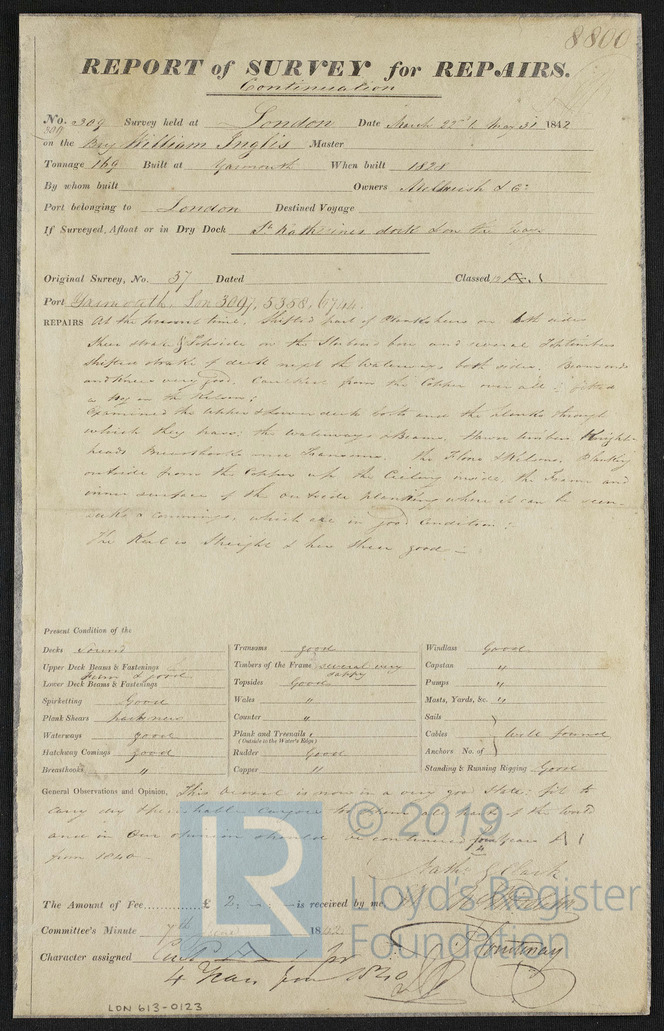 8800
REPORT of SURVEY for REPAIRS.
Continuation
No. 309 Survey held at London Date March 22d to May 31 1842
309
on the Brig William Inglis Master
Tonnage 169 Built at Yarmouth When built 1828
By whom built Owners & Co
Port belonging to London Destined Voyage
If Surveyed, Afloat or in Dry Dock St Katherines dock & on the ways
Original Survey, No. 37 Dated Classed A.1
Port Yarmouth. Lon 3097, 5358, 6744.
REPAIRS At the present time. Shifted part of Planksheers on both sides
Sheer strake & Topside on the Starboard bow and several Toptimbers
Shifted strake of deck next the Waterways both sides. Beam ends
and knees very good. Caulked from the Copper over all; fitted
a on the Kelson;
Examined the Upper & Lower deck bolts and the planks through
which they pass; the Waterways & Beams, Hawse timbers Knight-
heads Breasthooks and Transoms. the Floors & Kelsons, Planking
outside from the Copper up the Ceiling inside, the Frame and
inner surface of the outside planking where it can be seen.
decks & commings, which are in good condition;
The Keel is Straight & her Sheer good —
Present Condition of the
Decks Sound
Upper Deck Beams & Fastenings
Firm & good
Lower Deck Beams & Fastenings
Spirketting Good
Plank Shears part new
Waterways good
Hatchway Comings good
Breasthooks "
Transoms good
Timbers of the Frame several very
sappy
Topsides Good
Wales "
Counter "
Plank and Treenails
(Outside to the Water's Edge)
Rudder Good
Copper "
Windlass Good
Capstan "
Pumps "
Masts, Yards, &c. "
Sails
Cables well found
Anchors No. of
Standing & Running Rigging Good
General Observations and Opinion, This vessel is now in a very good state; fit to
carry dry & perishable cargoes to & from all parts of the world
and in Our opinion should be continued four Years A 1
4
from 1840 —
Nathl G Clark
The Amount of Fee £ 2: is received by me,
Committee's Minute 7th June 1842
Character assigned Cont A 1 for
4 Years from 1840
Fontenay
LR
© 2019
Lloyd's Register
Foundation
LDN 613-0123